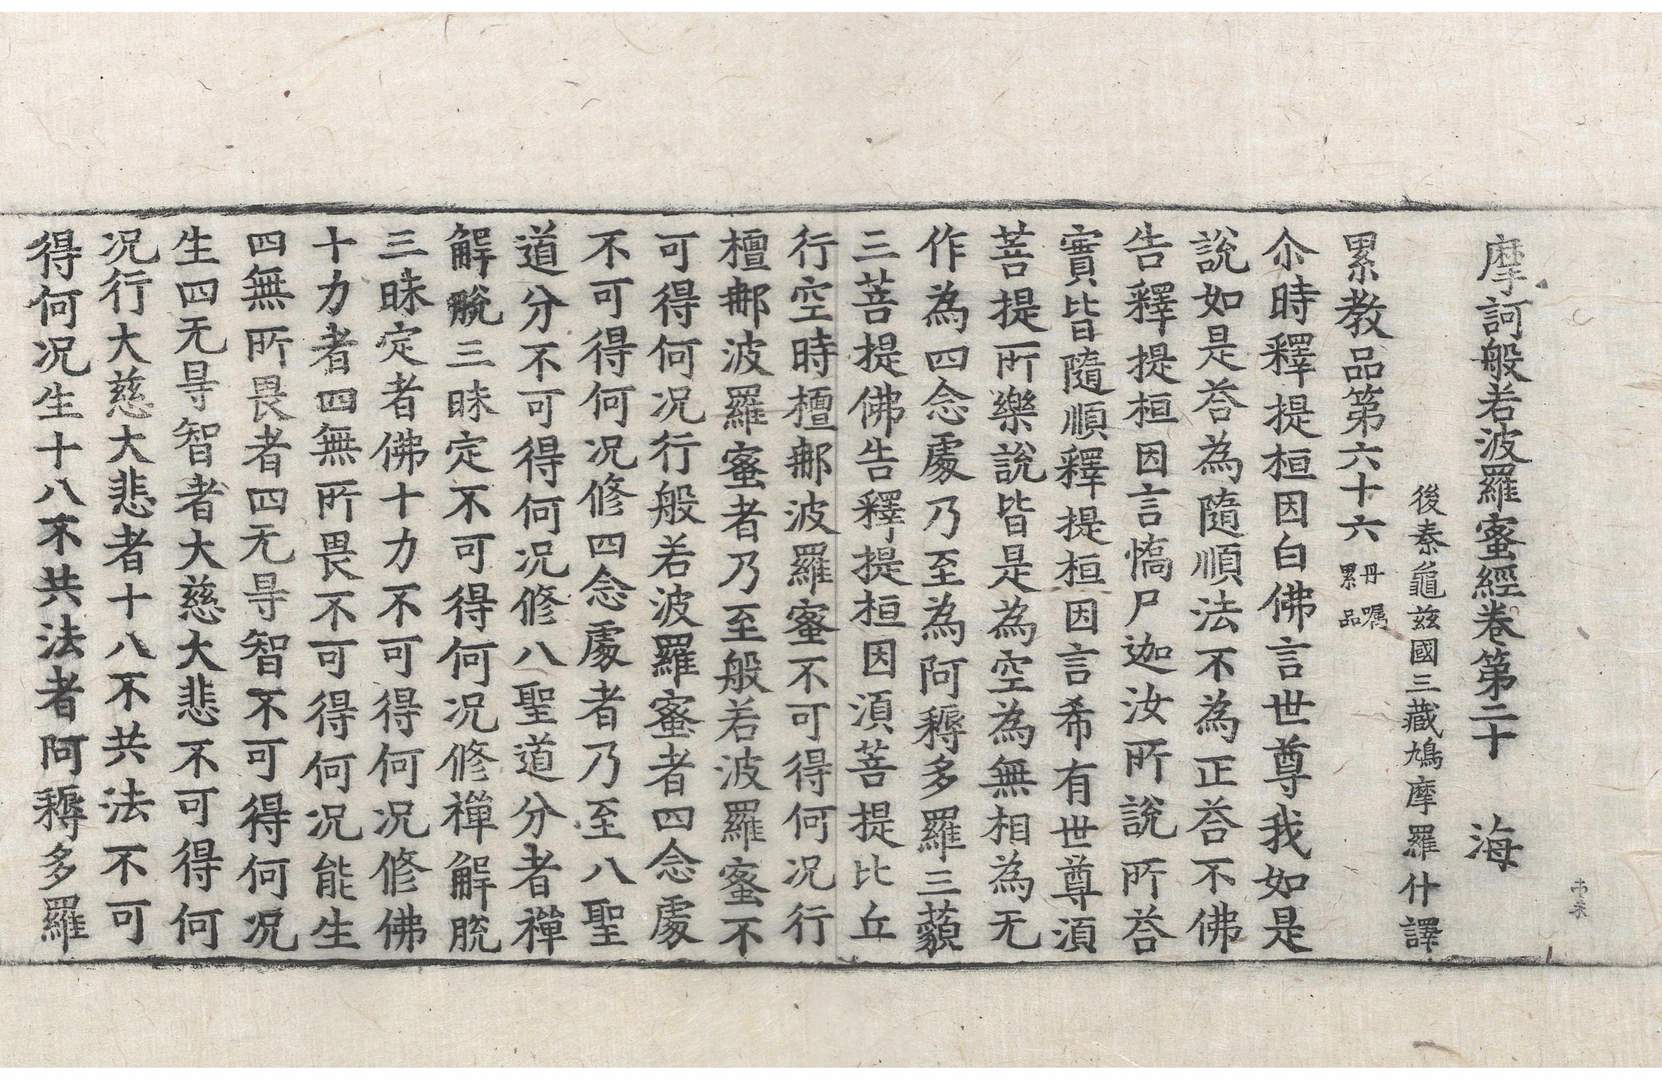 摩訶般若波羅蜜經卷第二十　海
後秦龜兹國三藏鳩摩羅什譯
累教品第六十六 丹囑累品
尒時釋提桓因白佛言世尊我如是
說如是荅為隨順法不為正荅不佛
告釋提桓因言憍尸迦汝所說所荅
實皆隨順釋提桓因言希有世尊湏
菩提所樂說皆是為空為無相為无
作為四念處乃至為阿耨多羅三藐
三菩提佛告釋提桓因湏菩提比丘
行空時檀𨚗波羅蜜不可得何况行
檀𨚗波羅蜜者乃至般若波羅蜜不
可得何况行般若波羅蜜者四念處
不可得何况修四念處者乃至八聖
道分不可得何况修八聖道分者禪
解脫三昧定不可得何况修禪解脫
三昧定者佛十力不可得何况修佛
十力者四無所畏不可得何况能生
四無所畏者四无㝵智不可得何况
生四无㝵智者大慈大悲不可得何
况行大慈大悲者十八不共法不可
得何况生十八不共法者阿耨多羅